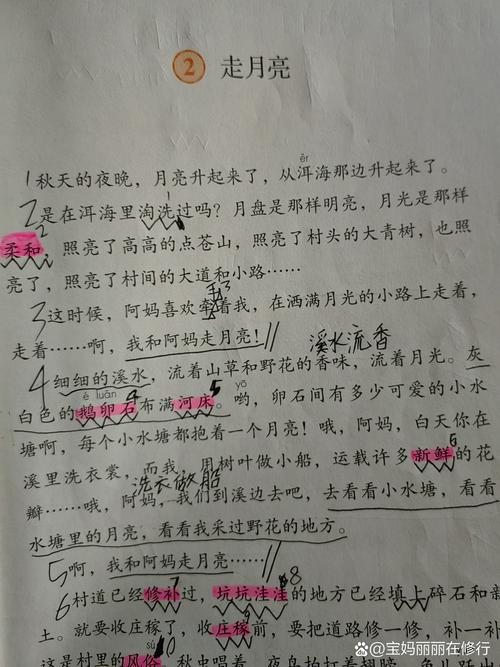 2 走月亮
ěr
1秋天的夜晚，月亮升起来了，从洱海那边升起来了。
2是在洱海里淘洗过吗？月盘是那样明亮，月光是那样
柔和，照亮了高高的点苍山，照亮了村头的大青树，也照
亮了，照亮了村间的大道和小路……
3这时候，阿妈喜欢牵着我，在洒满月光的小路上走着，
走着……啊，我和阿妈走月亮！
溪水流香
4细细的溪水，流着山草和野花的香味，流着月光。灰
é luǎn yō
白色的鹅卵石布满河床。哟，卵石间有多少可爱的小水
塘啊，每个小水塘都抱着一个月亮！哦，阿妈，白天你在
溪里洗衣裳，而我，用树叶做小船，运载许多新鲜的花
洗衣做船
瓣……哦，阿妈，我们到溪边去吧，去看看小水塘，看看
水塘里的月亮，看看我采过野花的地方。
5啊，我和阿妈走月亮……
6村道已经修补过，坑坑洼洼的地方已经填上碎石和新
土。就要收庄稼了，收庄稼前，要把道路修一修，补一补，
sú
这是村里的风俗。秋虫唱着，夜鸟拍打着翅膀，
@宝妈丽丽在修行